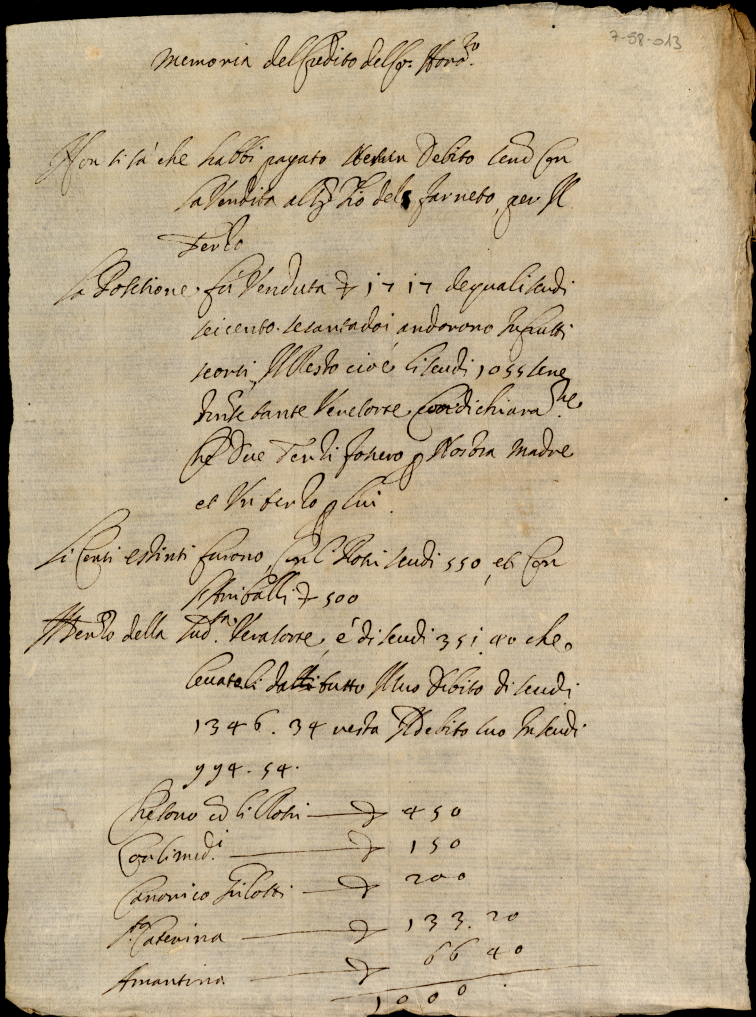 7-58-013
Memoria del Credito del Sr. Hora.º
Non si sà che habbi pagato Nesun Debito send Con
la Vendita al Zio del Farneto, per Il
Terzo
La Possione fu Venduta 1717 de quali scudi
seicento sesantadoi andorono In frutti
scorsi, Il Resto cioé li scudi 1055 sene
tante Venetorre Con dichiara.ne
Che Due Terzi fossero p Nostra Madre
et Un terzo p lui.
Li Censi estinti furono, Con li Rossi scudi 550, et Con
Anniballi 500
Il Terzo della Sud.ta Veratorre, é di scudi 351.40 che
levatoli dal tutto Il suo Debito di scudi
1346.34 resta Il debito suo In scudi
994.54.
Che sono Con li Rossi 450
Con li med.i 150
Canonico 200
S.ta Caterina 133.20
Amantina 66 40
1000.